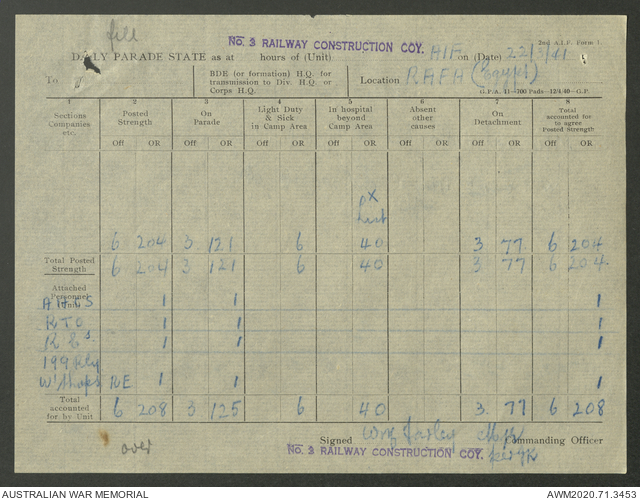 fill
No. 3 RAILWAY CONSTRUCTION COY. AIF
2nd A.I.F. Form 1.
DAILY PARADE STATE as at hours of (Unit) on (Date) 22/3/41
To
BDE (or formation) H.Q. for transmission to Div. H.Q. or Corps H.Q.
Location RAFA (Egypt)
G.P/A. 11—700 Pads—12/4/40—G.P.
1 2 3 4 5 6 7 8
Sections Companies etc. Posted Strength On Parade Light Duty & Sick in Camp Area In hospital beyond Camp Area Absent other causes On Detachment Total accounted for to agree Posted Strength
Off OR Off OR Off OR Off OR Off OR Off OR Off OR
6 204 3 121 6 40 3 77 6 204
Total Posted Strength 6 204 3 121 6 40 3 77 6 204
Attached Personnel Unit
1 1 1
RTO 1 1 1
REs. 1 1 1
199 Rly
W'shops RE 1 1 1
Total accounted for by Unit 6 208 3 125 6 40 3 77 6 208
over
Signed Commanding Officer
No. 3 RAILWAY CONSTRUCTION COY.
AUSTRALIAN WAR MEMORIAL
AWM2020.71.3453